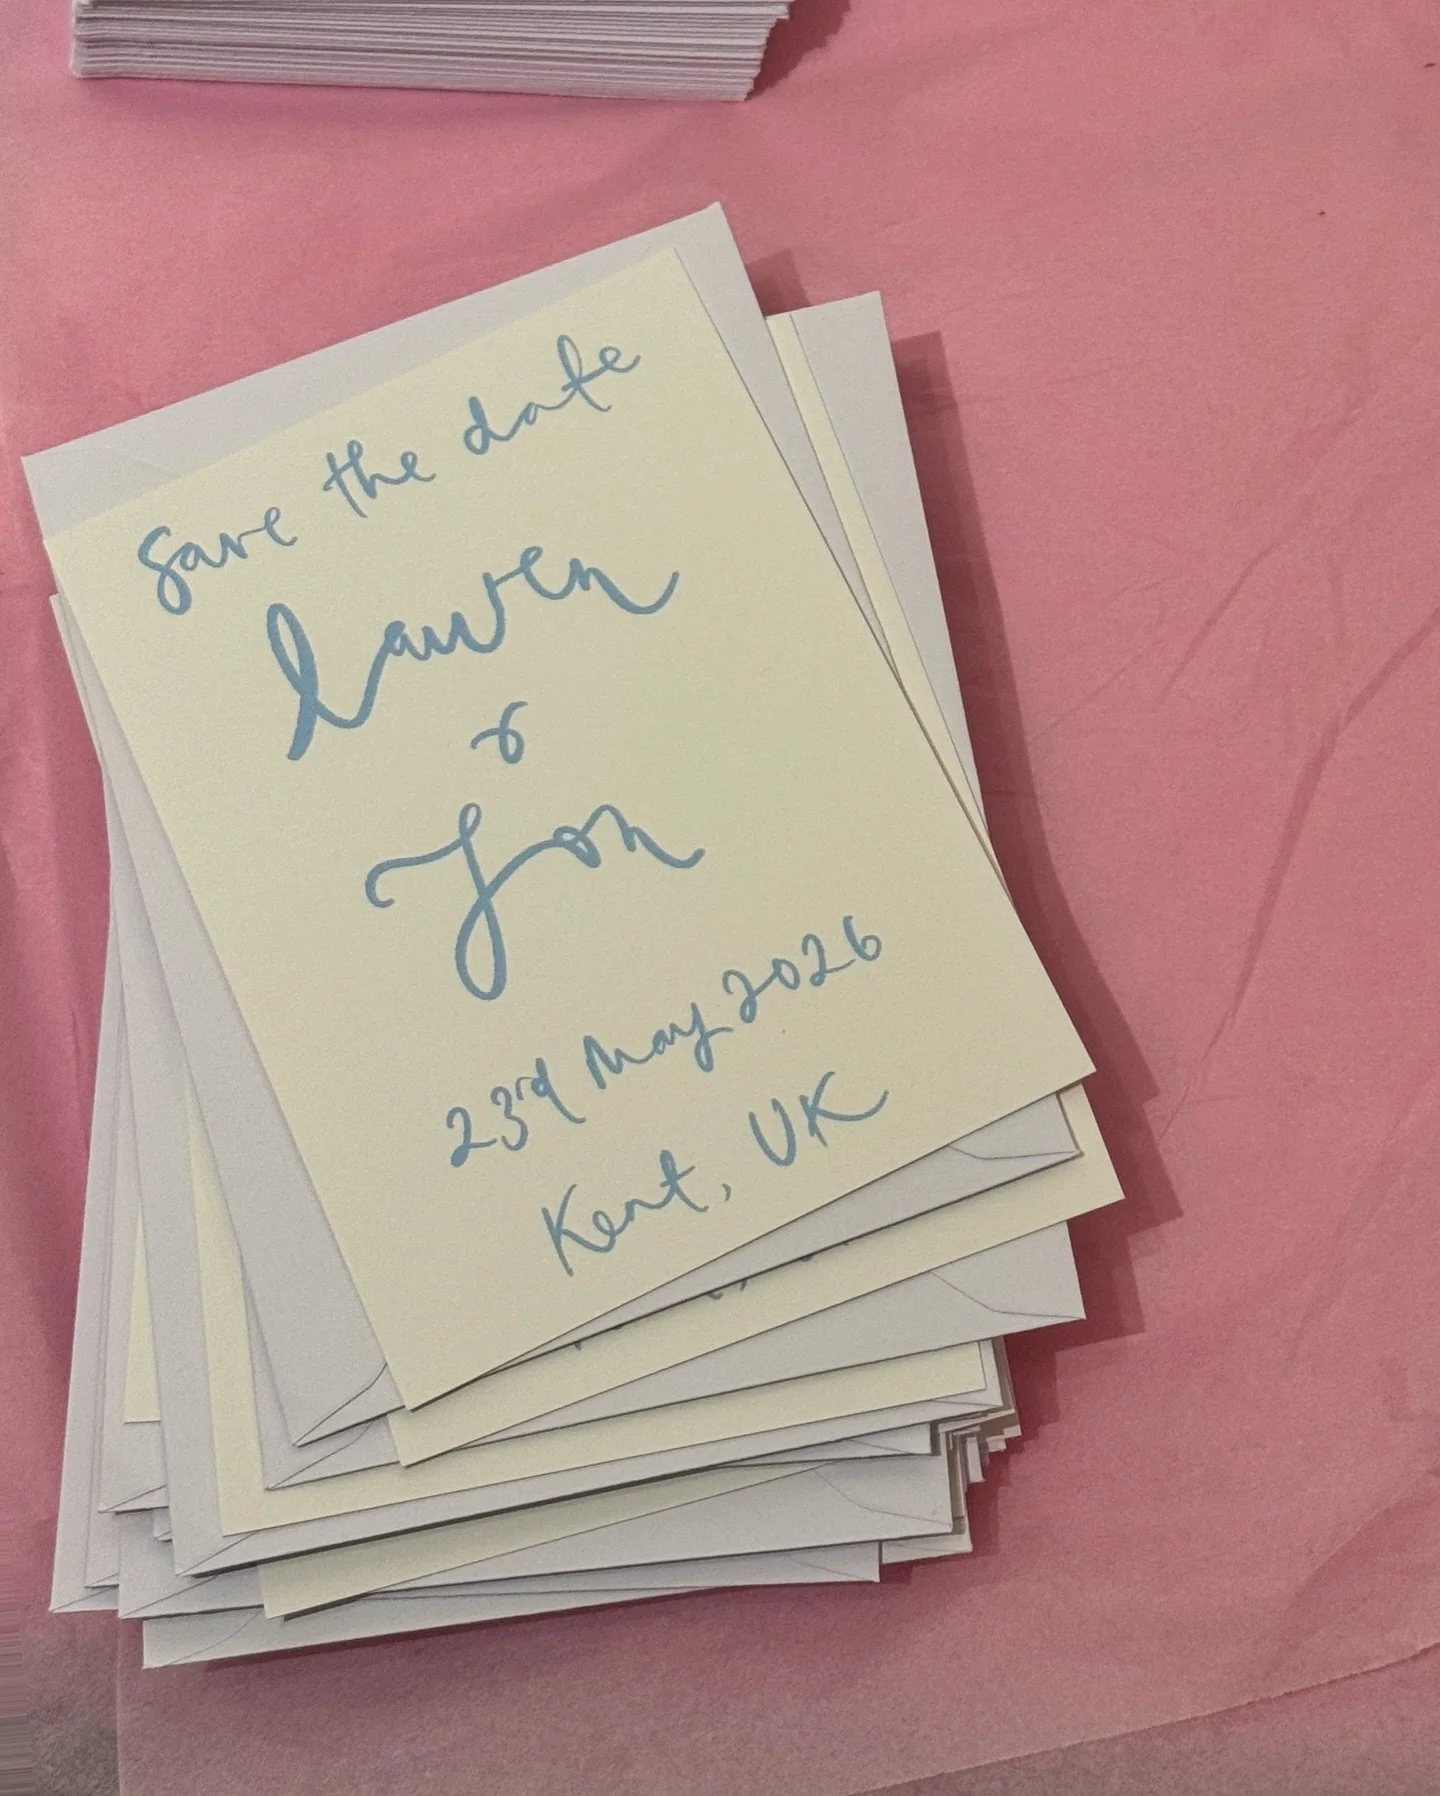 Save the date
Lauren
&
Jon
23rd May 2026
Kent, UK